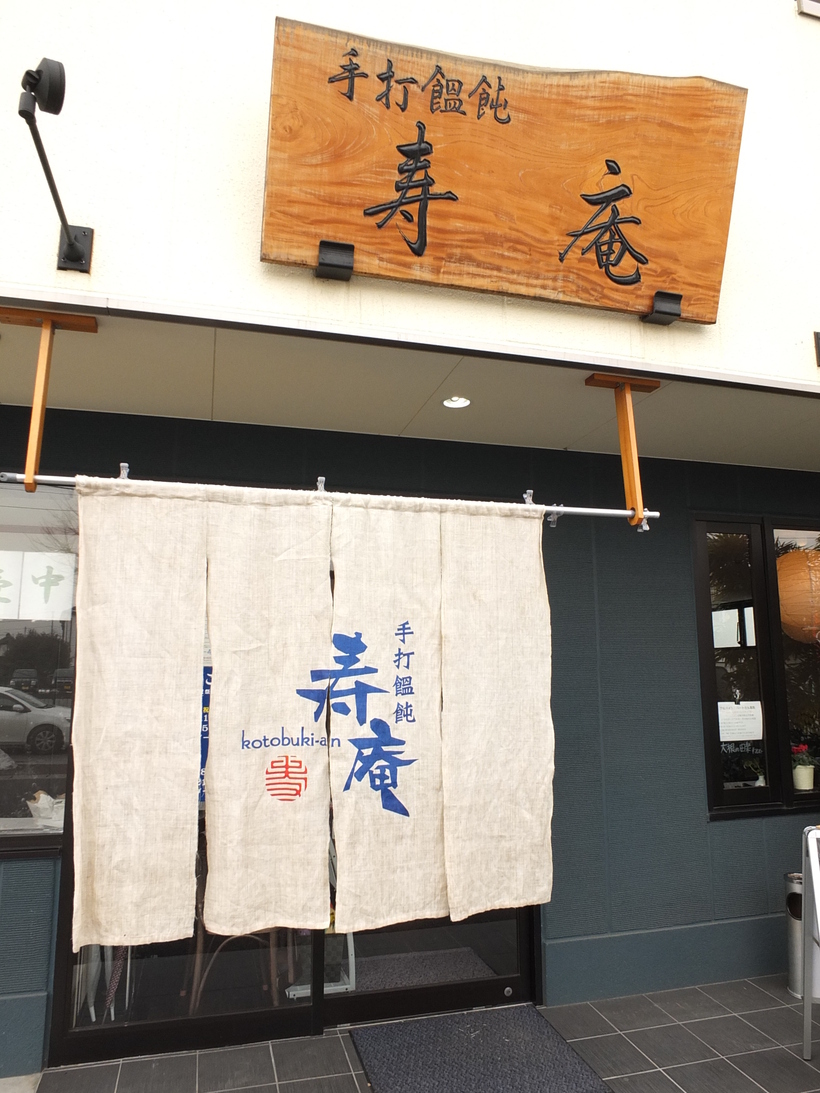 手打饂飩
寿庵
中
手打饂飩
寿庵
kotobuki-an
寿